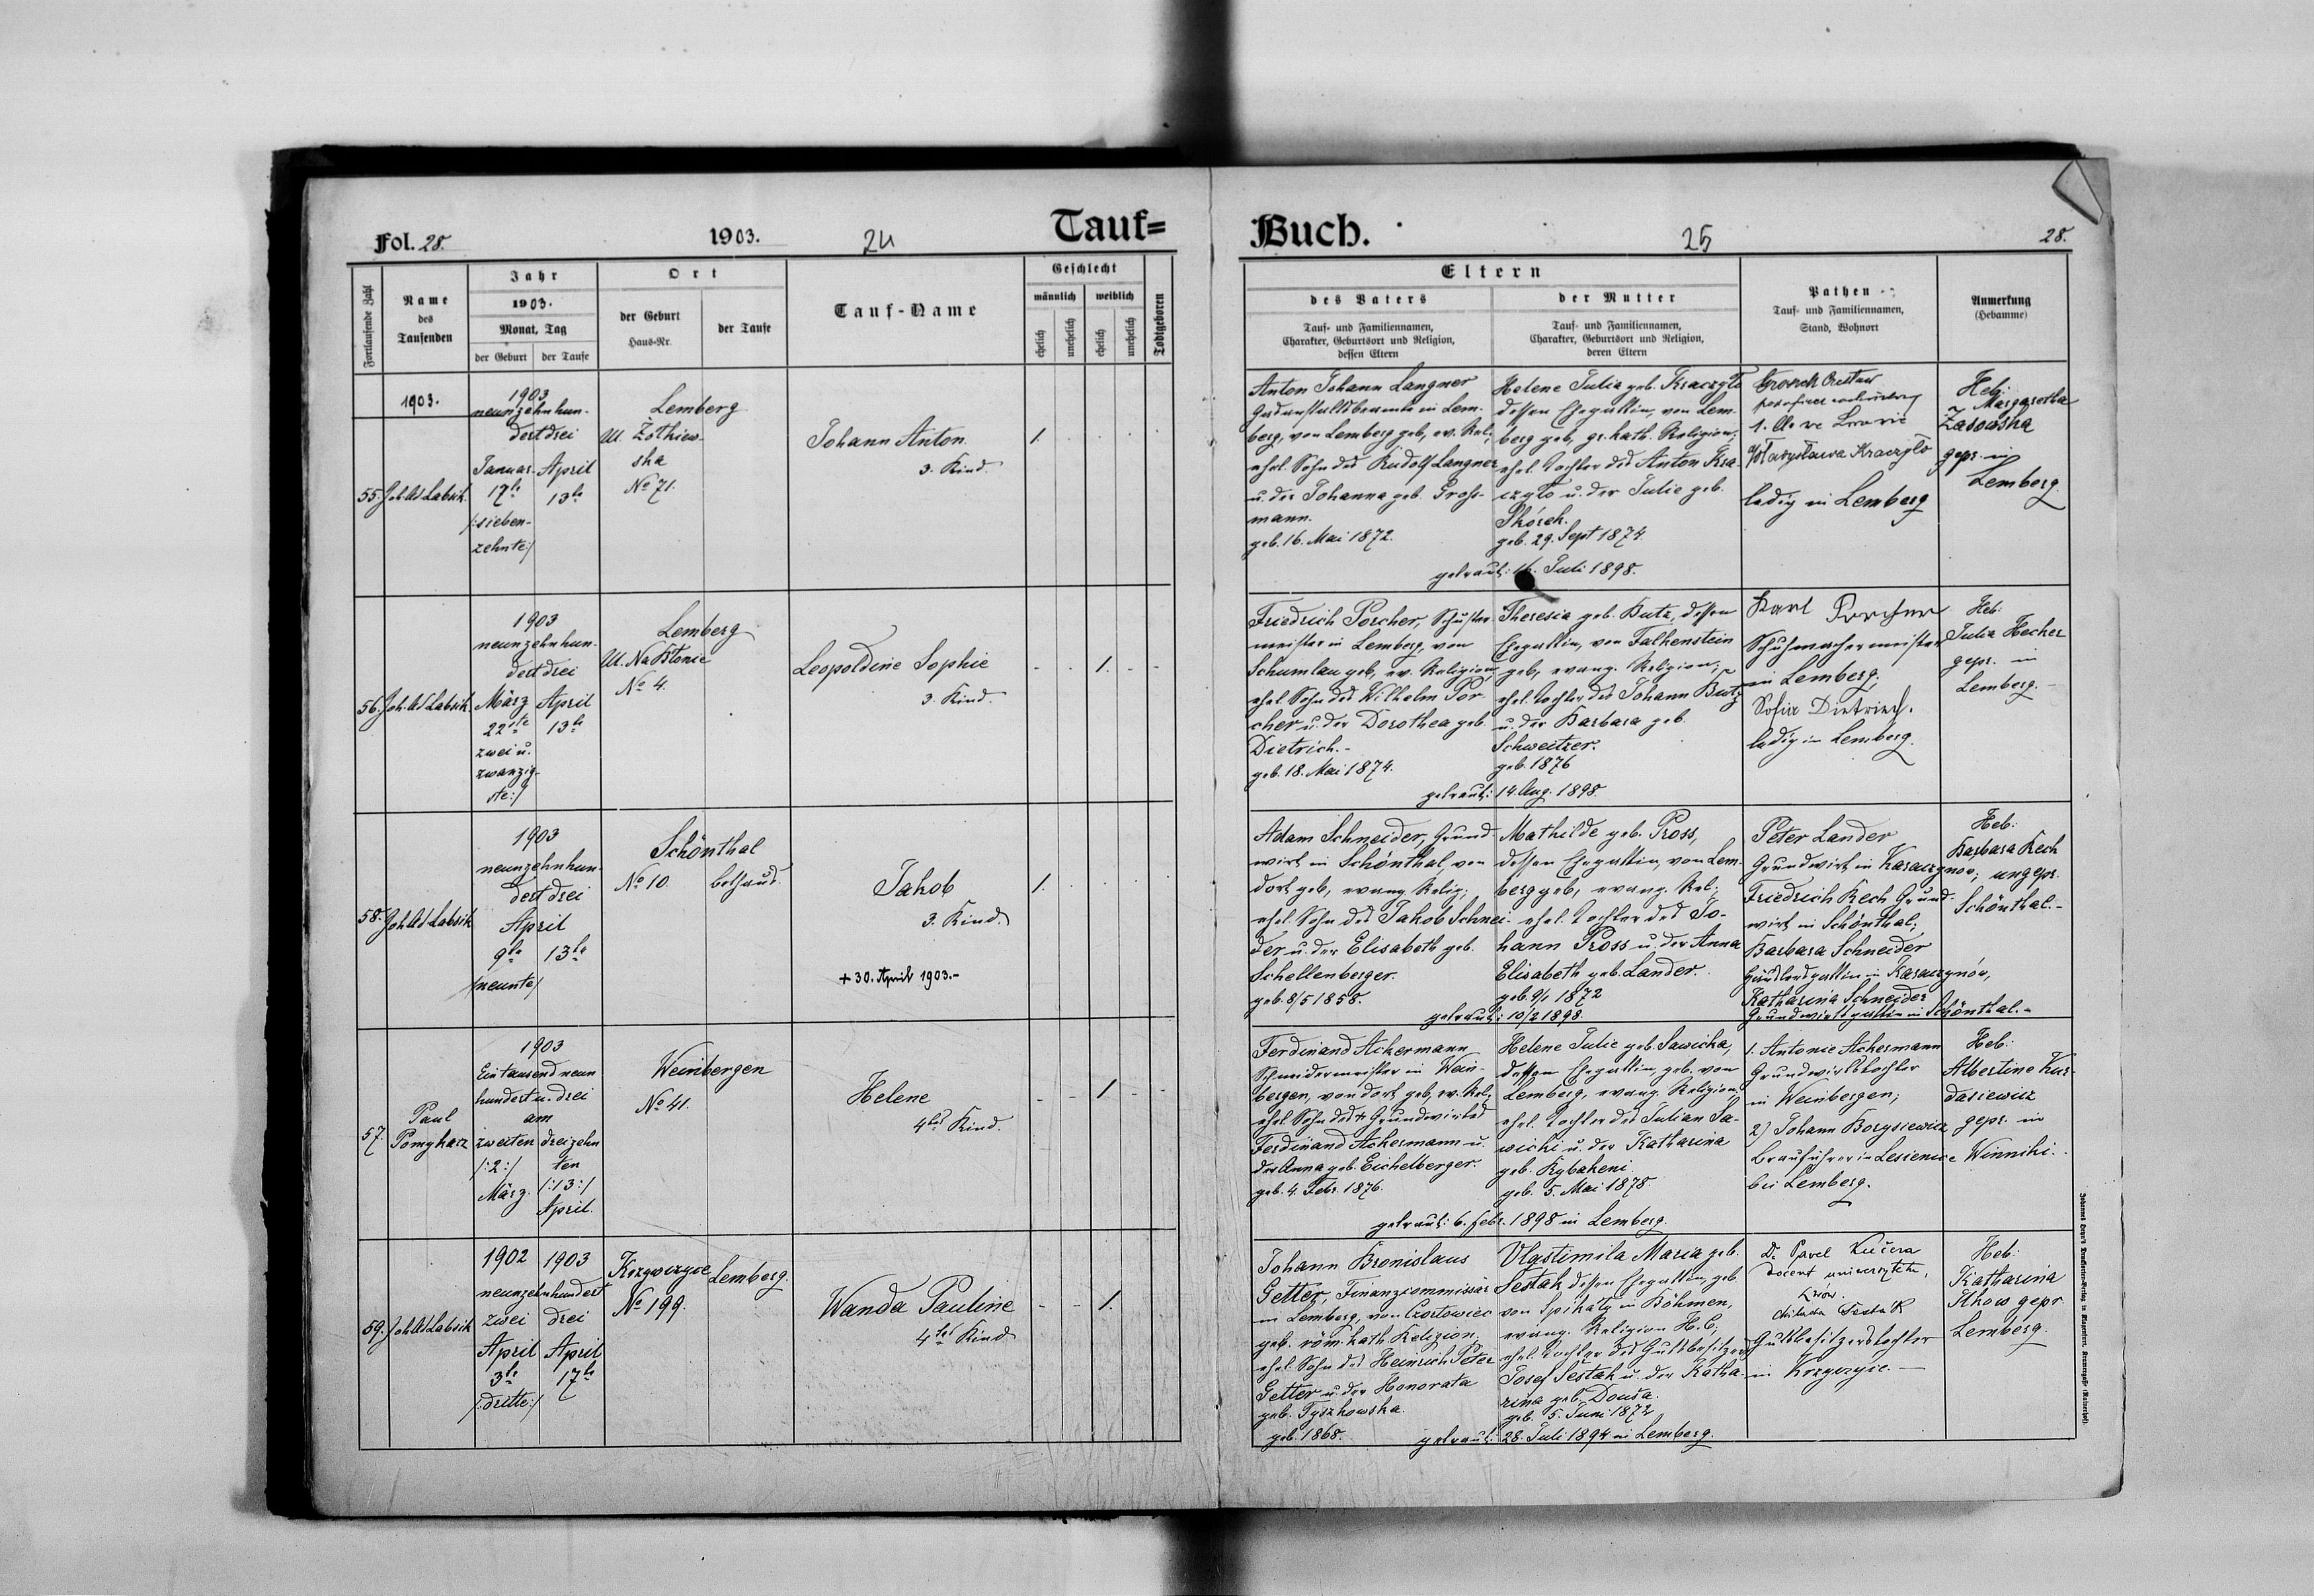 Fol. 28.
1903.
24
Tauf=
Buch.
25
28.
Fortlaufende Zahl
Name
des
Taufenden
Jahr
1903.
Monat, Tag
der Geburt
der Taufe
Ort
der Geburt
Haus-Nr.
der Taufe
Tauf-Name
Geschlecht
männlich
weiblich
ehelich
unehelich
ehelich
unehelich
Todtgeboren
Eltern
des Vaters
Tauf- und Familiennamen,
Charakter, Geburtsort und Religion,
dessen Eltern
der Mutter
Tauf- und Familiennamen,
Charakter, Geburtsort und Religion,
deren Eltern
Pathen
Tauf- und Familiennamen,
Stand, Wohnort
Anmerkung
(Hebamme)
1903.
55.
1903
neunzehnhun-
dert drei
Januar
17te
/:sieben-
zehnte:/
April
13te
Lemberg
Ul. Żółkiew-
ska
No 71.
Johann Anton.
3. Kind.
1.
Anton Johann Langner
in Lem-
berg, von Lemberg geb., ev. Rel.;
ehel. Sohn des Rudolf Langner
u. der Johanna geb. Gross-
mann.
geb. 16. Mai 1872.
Helene Julia geb. Kraczyło
dessen Ehegattin, von Lem-
berg geb., gr. kath. Religion;
ehel. Tochter des Anton Kra-
czyło u. der Julie geb.
Skórek.
geb. 29. Sept 1874.
getraut: 16. Juli 1898.
Kraczyło
ledig in Lemberg
Heb:
Margaretha
Zasowska
gepr. in
Lemberg.
56.
1903
neunzehnhun-
dert drei
März
22ste
zwei u.
zwanzig-
ste:/
April
13te
Lemberg
Ul. Na Błonie
No 4.
Leopoldine Sophie
3. Kind.
1.
Friedrich Porcher, Schuster-
meister in Lemberg, von
Schumlau geb., ev. Religion;
ehel. Sohn des Wilhelm Por-
cher u. der Dorothea geb.
Dietrich.-
geb. 18. Mai 1874.
Theresia geb. Butz, dessen
Ehegattin, von Falkenstein
geb., evang. Religion;
ehel. Tochter des Johann Butz
u. der Barbara geb.
Schweitzer.
geb. 1876
getraut: 14. Aug. 1898.
Karl Porcher
Schuhmachermeister
in Lemberg;
Sofia Dietrich.
ledig in Lemberg.
Heb:
Julia Hecher
gepr. in
Lemberg.
58.
1903
neunzehnhun-
dert drei
April
9te
/neunte/
13te
Schönthal
No 10.
Bethaus.
Jakob
3. Kind.
+ 30. April 1903.-
1.
Adam Schneider, Grund-
wirt in Schönthal von
dort geb., evang. Relig.;
ehel. Sohn des Jakob Schnei-
der u. der Elisabeth geb.
Schellenberger.
geb. 8/5 1858.
Mathilde geb. Pross,
dessen Ehegattin, von Lem-
berg geb., evang. Rel.;
ehel. Tochter des Jo-
hann Pross u. der Anna
Elisabeth geb. Lander.
geb. 9/1 1872
getraut: 10/2 1898.
Peter Lander
Grundwirt in Karaczynow;
Friedrich Kech Grund-
wirt in Schönthal;
Barbara Schneider
in Karaczynów,
Katharina Schneider
Grundwirtsgattin in Schönthal.-
Heb:
Barbara Kech
ungepr.
Schönthal.-
57.
Paul
Pomykacz
1903
Eintausend neun
hundert u. drei
am
zweiten
/:2:/
März.
dreizehn
ten
/:13:/
April.
Weinbergen
No 41.
Helene
4tes Kind.
1.
Ferdinand Ackermann
Schneidermeister in Wein-
bergen, von dort geb., ev. Rel.;
ehel. Sohn des + Grundwirtes
Ferdinand Ackermann u.
der Anna geb. Eichelberger.
geb. 4. Febr. 1876.
Helene Julie geb. Sawicka,
dessen Ehegattin, geb. von
Lemberg, evang. Religion,
ehel. Tochter des Julian Sa-
wicki u. der Katharina
geb. Rybakeni.
geb. 5. Mai 1878.
getraut: 6. Febr. 1898 in Lemberg.
1. Antonie Ackermann
Grundwirtstochter
in Weinbergen;
2) Johann Borysiewicz
Brauführer in Lesienice
bei Lemberg.
Heb:
Albertine Kur-
dasiewicz
gepr. in
Winniki.
59.
1902
1903
neunzehnhundert
zwei
drei
April
3te
/:dritte:/
April
17te
Krzywczyce
No 199.
Lemberg.
Wanda Pauline
4tes Kind
1.
Johann Bronislaus
Getter, Finanzcommissär
in Lemberg, von Czortowiec
geb. röm. kath. Religion;
ehel. Sohn des Heinrich Peter
Getter u. der Honorata
geb. Tyszkowska.
geb. 1868.
Vlastimila Maria geb.
Šestak dessen Ehegattin, geb.
von in Böhmen,
evang. Religion H. C.;
ehel. Tochter des Gutsbesitzers
Josef Šestak u. der Katha-
rina geb. Douša.
geb. 5. Juni 1872
getraut: 28. Juli 1894 in Lemberg.
Dr. Pavel Kučera
docent universytetu,
Lwów.
Gutsbesitzerstochter
in Krzywczyce.-
Heb:
Katharina
Ilkow gepr.
Lemberg.